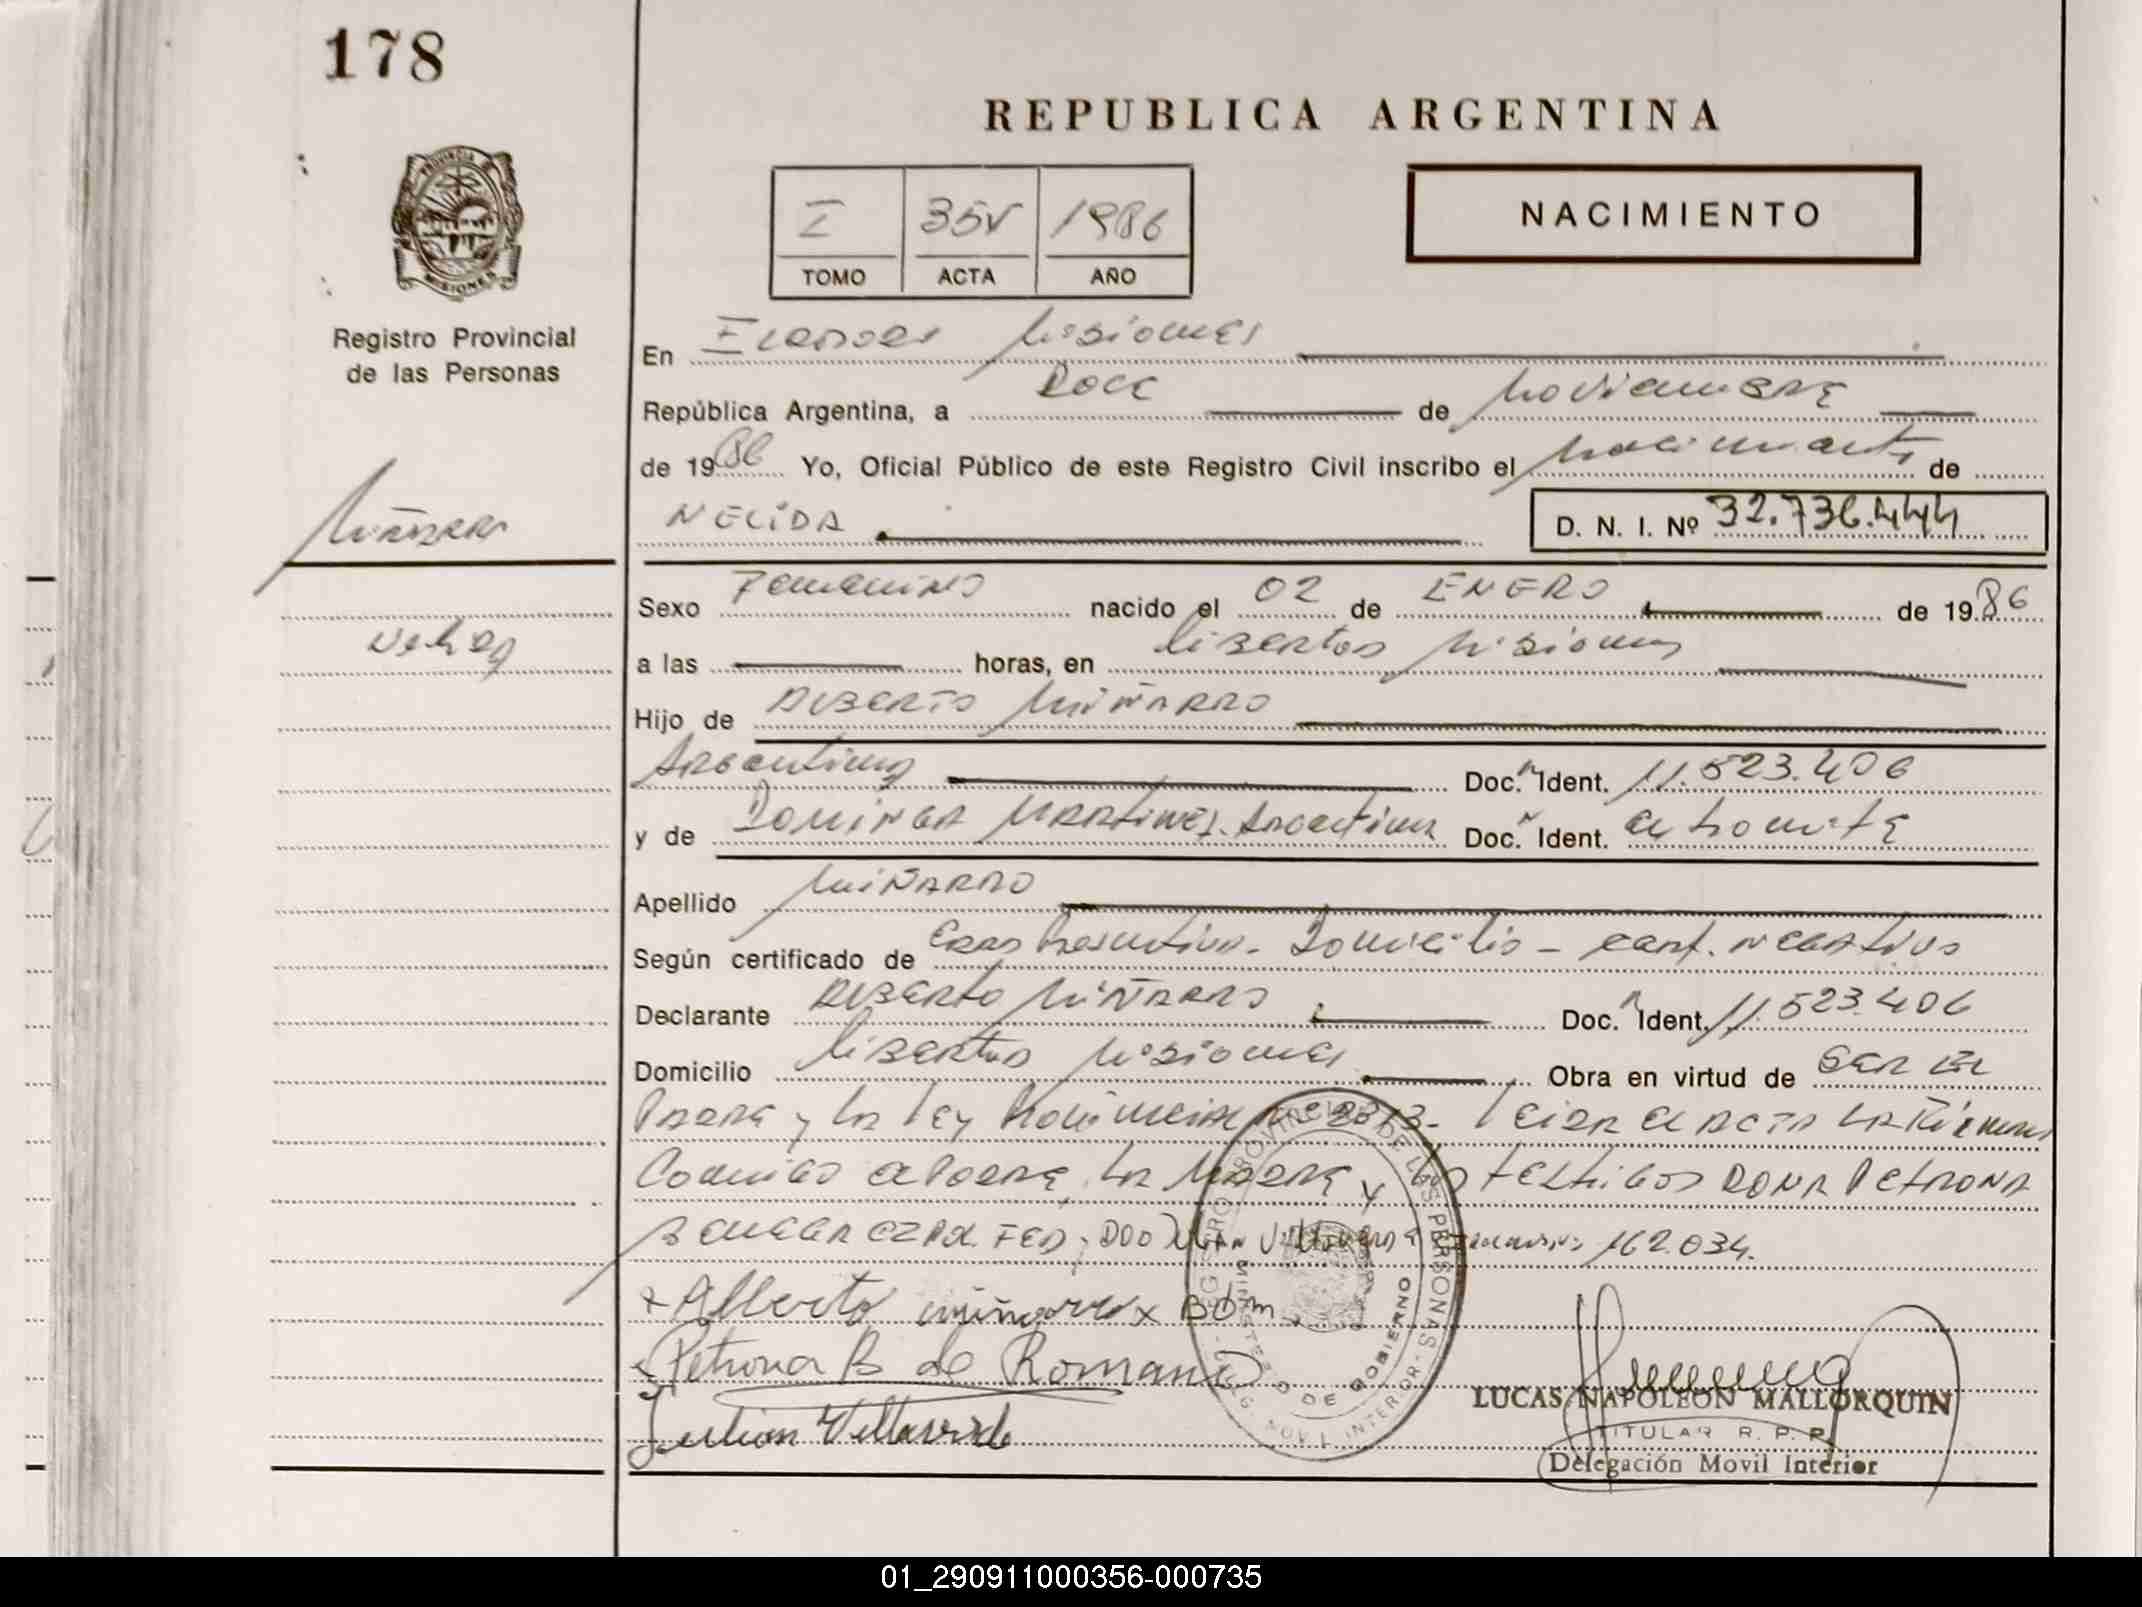 178
REPUBLICA ARGENTINA
PROVINCIA DE MISIONES
I 35V 1986
TOMO ACTA AÑO
NACIMIENTO
Registro Provincial
de las Personas
En Misiones
República Argentina, a Doce de Noviembre
de 1986 Yo, Oficial Público de este Registro Civil inscribo el Nacimiento de
NELIDA D. N. I. Nº 32.736.444
Sexo Femenino nacido el 02 de ENERO de 1986
a las horas, en Libertad Misiones
Hijo de ALBERTO MIÑARRO
Argentino Doc. Ident. 11.523.406
y de DOMINGA MARTINEZ. Argentina Doc. Ident.
Apellido MIÑARRO
Según certificado de Domicilio - cert. negativo
Declarante ALBERTO MIÑARRO Doc. Ident. 11.523.406
Domicilio Libertad Misiones Obra en virtud de SER EL
PADRE y LA Ley 2313. Leida el ACTA LA FIRMAN
Conmigo el Padre, LA MADRE y los testigos DOÑA PETRONA
162.034.
x Alberto miñarro x BDM
x Petrona B de Romano
Julian Villaverde
REGISTRO PROVINCIAL DE LAS PERSONAS
MINISTERIO DE GOBIERNO
LUCAS NAPOLEON MALLORQUIN
TITULAR R. P. P.
Delegación Movil Interior
01_290911000356-000735